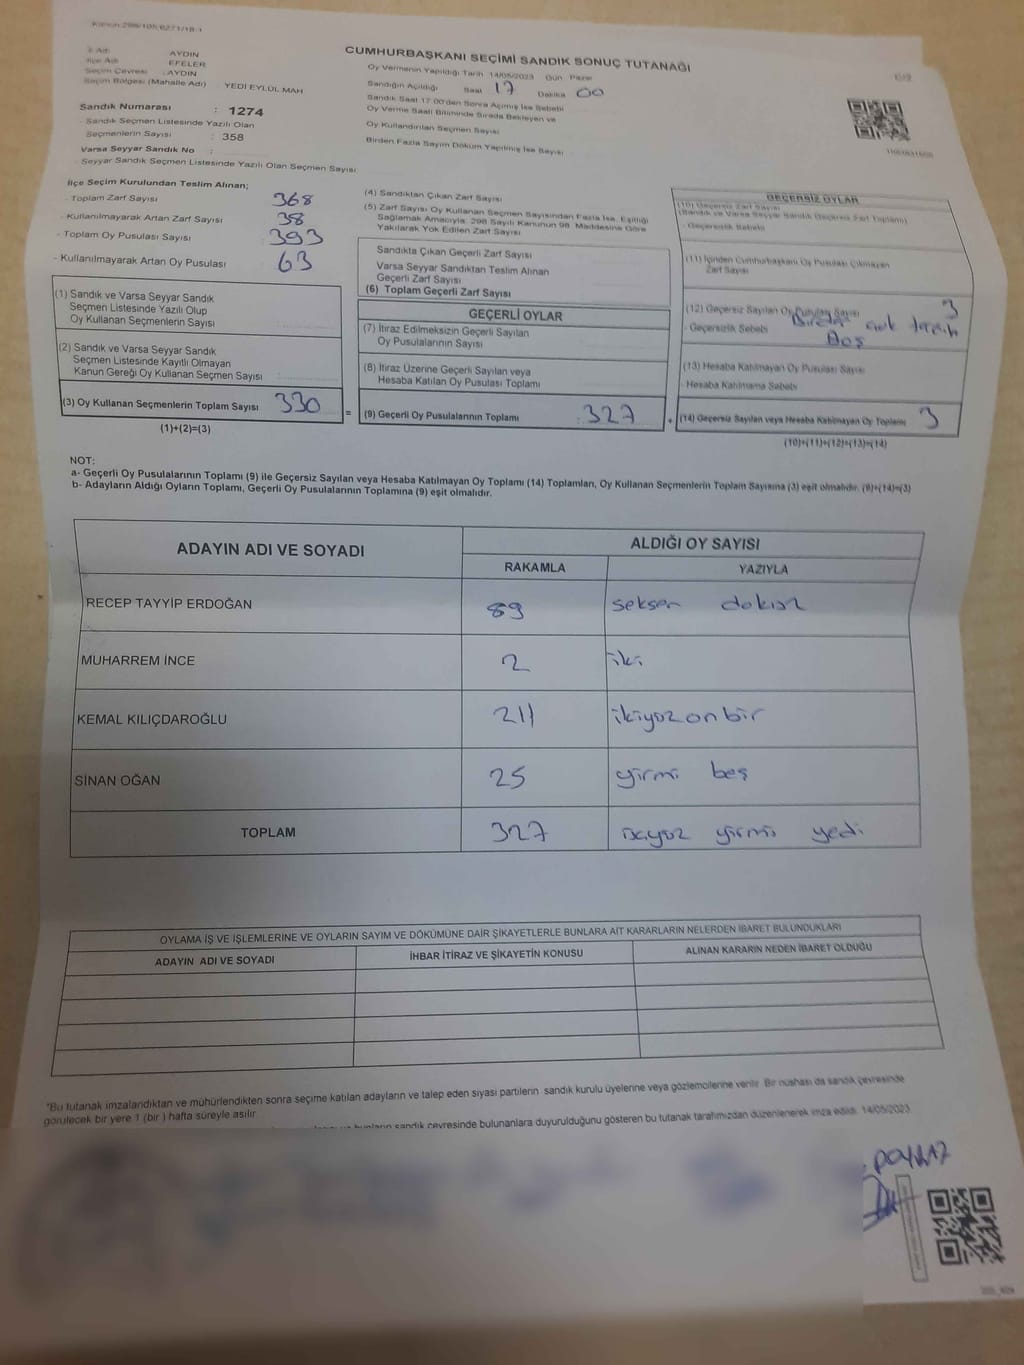 CUMHURBAŞKANI SEÇİMİ SANDIK SONUÇ TUTANAĞI
İl Adı AYDIN
İlçe Adı EFELER
Seçim Çevresi : AYDIN
Seçim Bölgesi (Mahalle Adı) : YEDİ EYLÜL MAH
Sandık Numarası : 1274
Sandık Seçmen Listesinde Yazılı Olan
Seçmenlerin Sayısı : 358
Varsa Seyyar Sandık No :
Seyyar Sandık Seçmen Listesinde Yazılı Olan Seçmen Sayısı
Oy Vermenin Yapıldığı Tarih 14/05/2023 Gün Pazar
Sandığın Açıldığı Saat 17 Dakika 00
Sandık Saat 17.00'den Sonra Açılmış İse Sebebi
Oy Verme Saati Bitiminde Sırada Bekleyen ve
Oy Kullandırılan Seçmen Sayısı
Birden Fazla Sayım Döküm Yapılmış İse Sayısı
İlçe Seçim Kurulundan Teslim Alınan;
- Toplam Zarf Sayısı 368
- Kullanılmayarak Artan Zarf Sayısı 38
- Toplam Oy Pusulası Sayısı 393
- Kullanılmayarak Artan Oy Pusulası 63
(1) Sandık ve Varsa Seyyar Sandık
Seçmen Listesinde Yazılı Olup
Oy Kullanan Seçmenlerin Sayısı
(2) Sandık ve Varsa Seyyar Sandık
Seçmen Listesinde Kayıtlı Olmayan
Kanun Gereği Oy Kullanan Seçmen Sayısı
(3) Oy Kullanan Seçmenlerin Toplam Sayısı 330
(1)+(2)=(3)
(4) Sandıktan Çıkan Zarf Sayısı
(5) Zarf Sayısı Oy Kullanan Seçmen Sayısından Fazla İse, Eşitliği
Sağlamak Amacıyla, 298 Sayılı Kanunun 98. Maddesine Göre
Yakılarak Yok Edilen Zarf Sayısı
Sandıkta Çıkan Geçerli Zarf Sayısı
Varsa Seyyar Sandıktan Teslim Alınan
Geçerli Zarf Sayısı
(6) Toplam Geçerli Zarf Sayısı
GEÇERLİ OYLAR
(7) İtiraz Edilmeksizin Geçerli Sayılan
Oy Pusulalarının Sayısı
(8) İtiraz Üzerine Geçerli Sayılan veya
Hesaba Katılan Oy Pusulası Toplamı
= (9) Geçerli Oy Pusulalarının Toplamı 327
GEÇERSİZ OYLAR
(10) Geçersiz Zarf Sayısı
(Sandık ve Varsa Seyyar Sandık Geçersiz Zarf Toplamı)
Geçersizlik Sebebi
(11) İçinden Cumhurbaşkanı Oy Pusulası Çıkmayan
Zarf Sayısı
(12) Geçersiz Sayılan Oy Pusulası Sayısı 3
- Geçersizlik Sebebi Birden çok tercih
Boş
(13) Hesaba Katılmayan Oy Pusulası Sayısı
Hesaba Katılmama Sebebi
+ (14) Geçersiz Sayılan veya Hesaba Katılmayan Oy Toplamı 3
(10)+(11)+(12)+(13)=(14)
NOT:
a- Geçerli Oy Pusulalarının Toplamı (9) ile Geçersiz Sayılan veya Hesaba Katılmayan Oy Toplamı (14) Toplamları, Oy Kullanan Seçmenlerin Toplam Sayısına (3) eşit olmalıdır. (9)+(14)=(3)
b- Adayların Aldığı Oyların Toplamı, Geçerli Oy Pusulalarının Toplamına (9) eşit olmalıdır.
ADAYIN ADI VE SOYADI ALDIĞI OY SAYISI
RAKAMLA YAZIYLA
RECEP TAYYİP ERDOĞAN 89 seksen dokuz
MUHARREM İNCE 2 iki
KEMAL KILIÇDAROĞLU 211 ikiyüzonbir
SİNAN OĞAN 25 yirmi beş
TOPLAM 327 üçyüz yirmi yedi
OYLAMA İŞ VE İŞLEMLERİNE VE OYLARIN SAYIM VE DÖKÜMÜNE DAİR ŞİKAYETLERLE BUNLARA AİT KARARLARIN NELERDEN İBARET BULUNDUKLARI
ADAYIN ADI VE SOYADI İHBAR İTİRAZ VE ŞİKAYETİN KONUSU ALINAN KARARIN NEDEN İBARET OLDUĞU
"Bu tutanak imzalandıktan ve mühürlendikten sonra seçime katılan adayların ve talep eden siyasi partilerin sandık kurulu üyelerine veya gözlemcilerine verilir. Bir nüshası da sandık çevresinde
görülecek bir yere 1 (bir) hafta süreyle asılır
sandık çevresinde bulunanlara duyurulduğunu gösteren bu tutanak tarafımızdan düzenlenerek imza edildi. 14/05/2023
POYRAZ